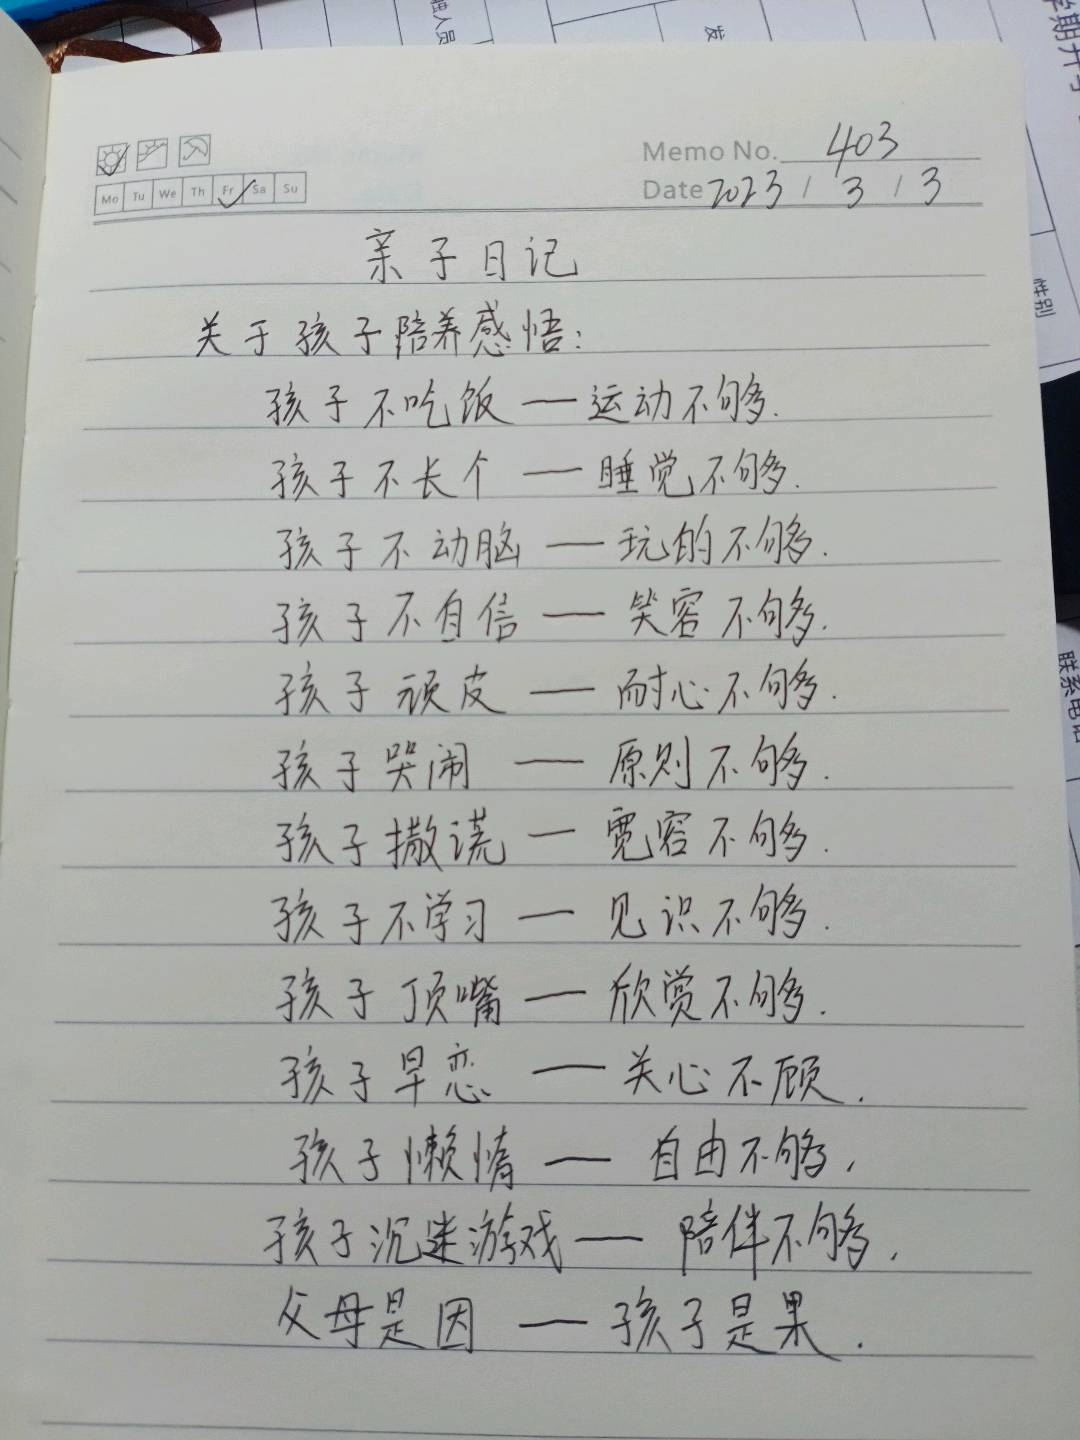 触人员
发
学期开学
Memo No. 403
Mo Tu We Th Fr Sa Su
Date 2023 / 3 / 3
亲子日记
性别
关于孩子陪养感悟：
孩子不吃饭 — 运动不够.
孩子不长个 — 睡觉不够.
孩子不动脑 — 玩的不够.
孩子不自信 — 笑容不够.
孩子顽皮 — 耐心不够.
联系电话
孩子哭闹 — 原则不够.
孩子撒谎 — 宽容不够.
孩子不学习 — 见识不够.
孩子顶嘴 — 欣赏不够.
孩子早恋 — 关心不顾.
孩子懒惰 — 自由不够.
孩子沉迷游戏 — 陪伴不够.
父母是因 — 孩子是果.